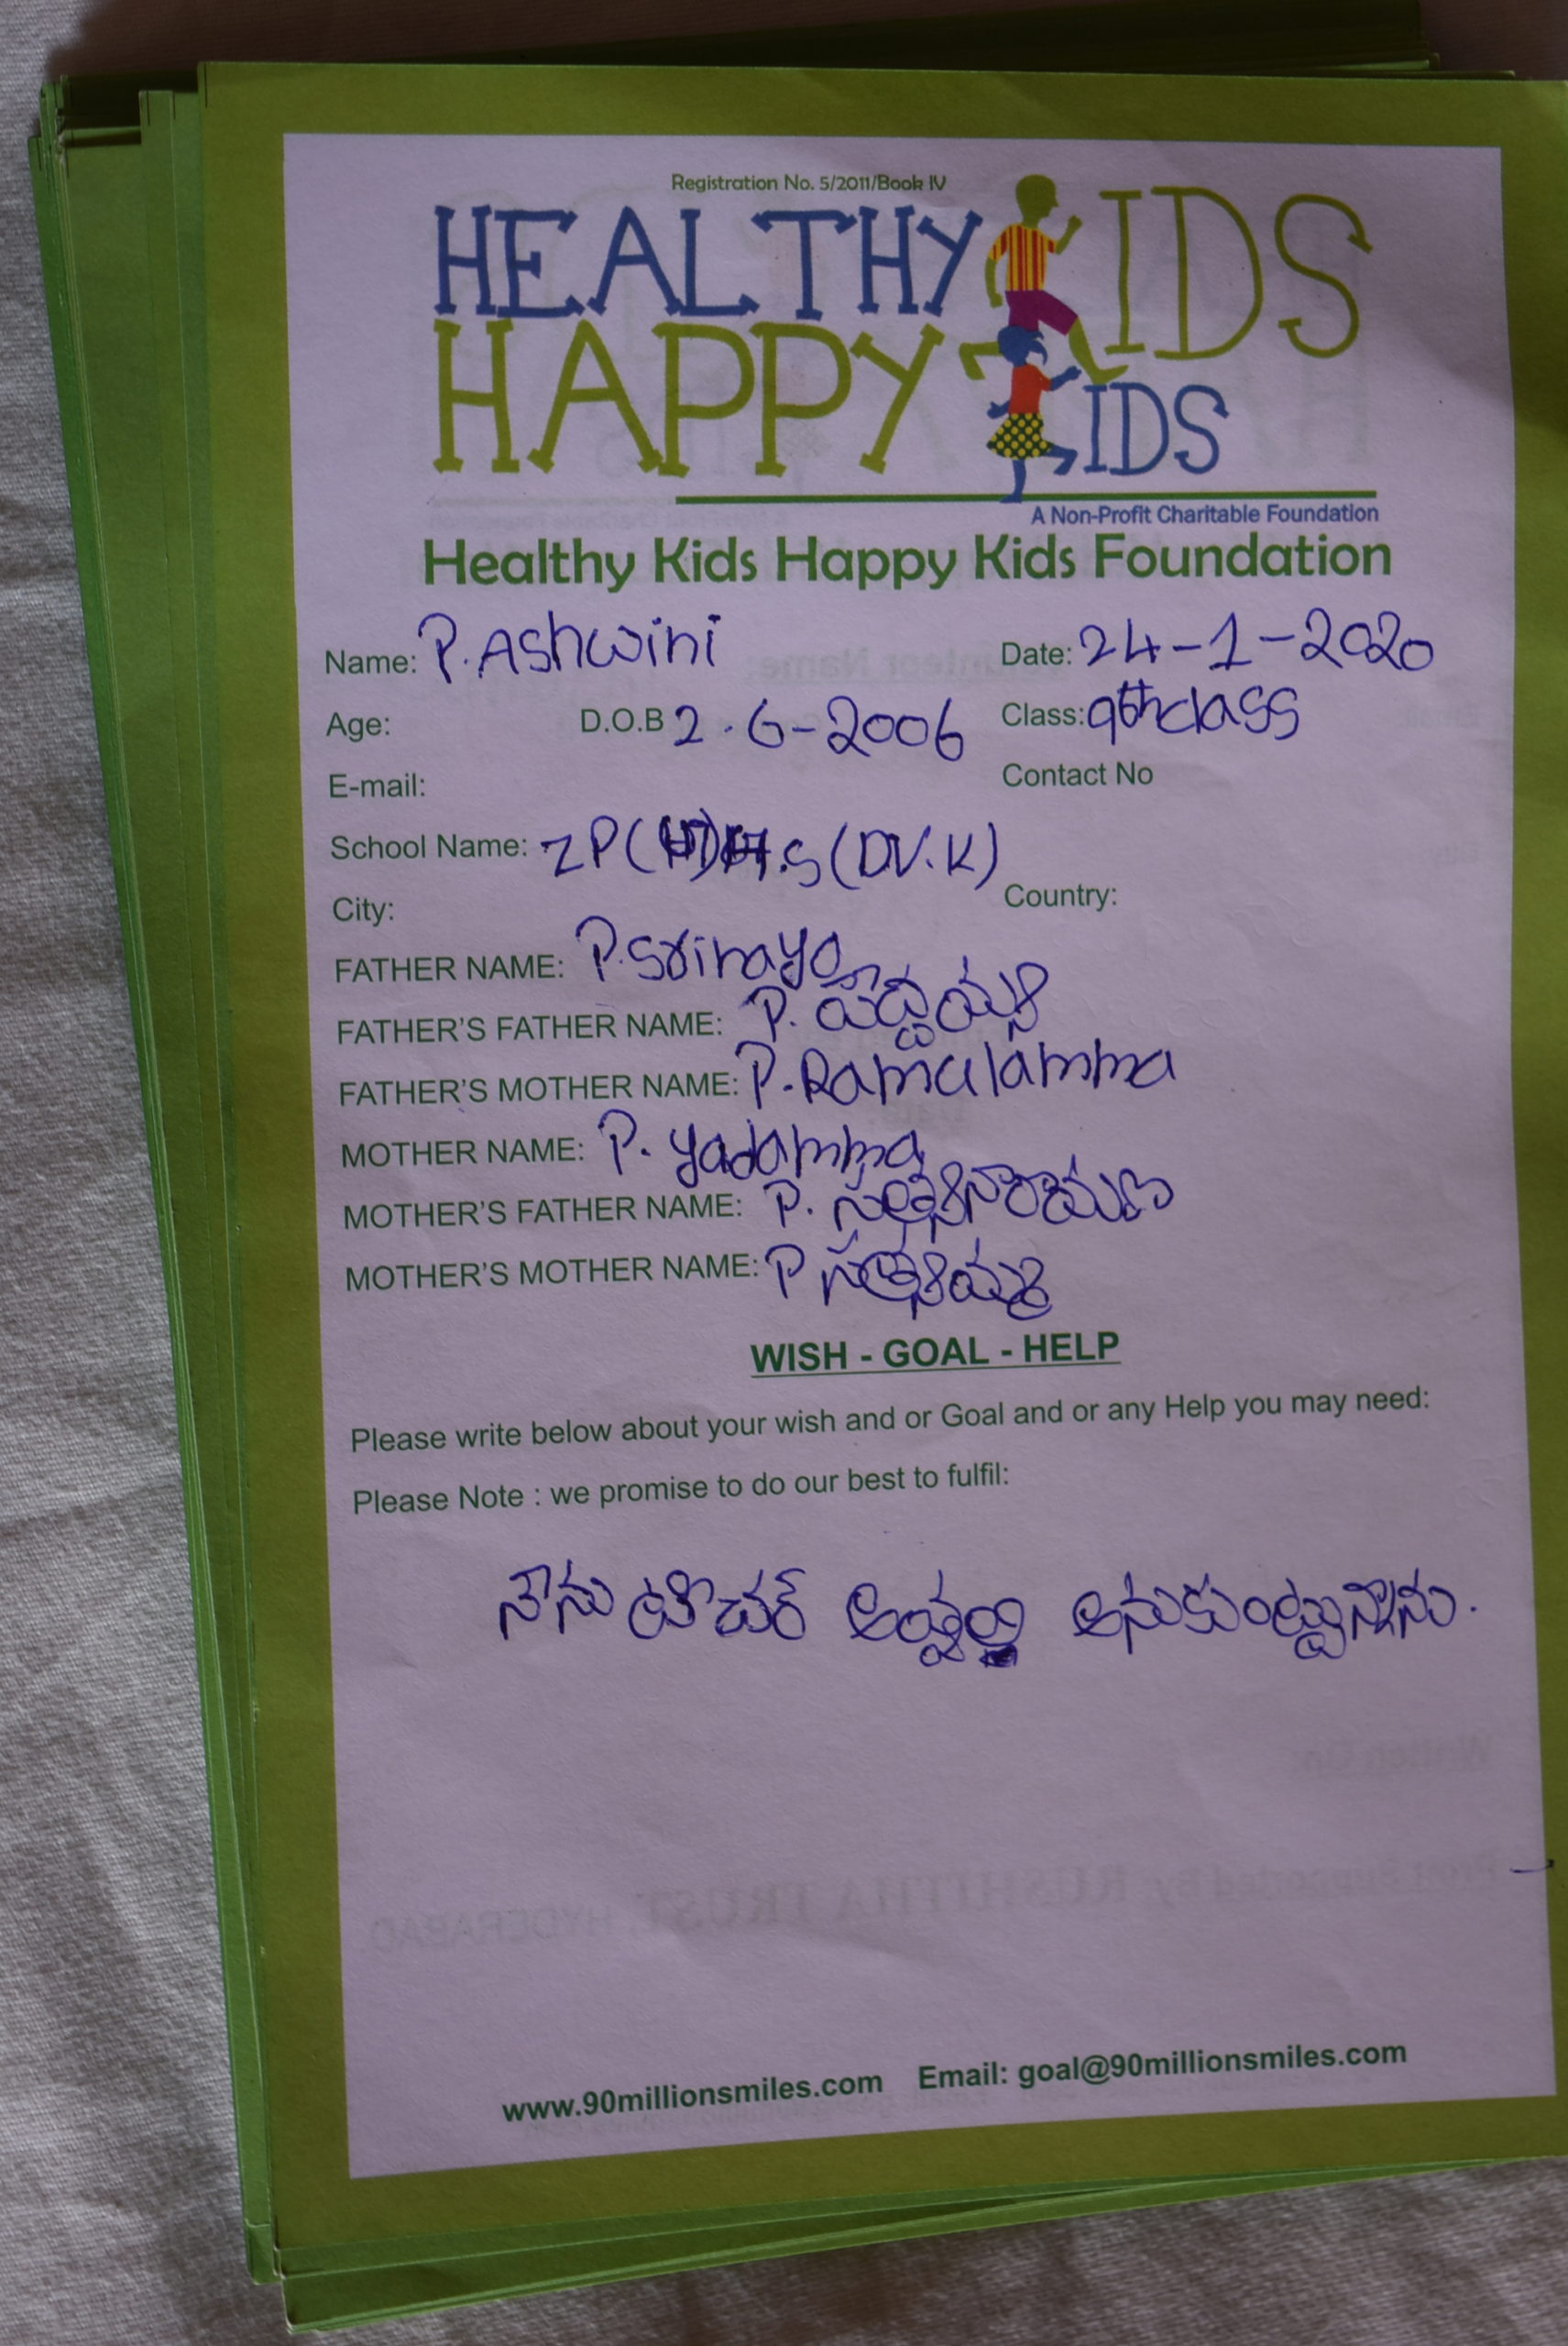 Registration No. 5/2011/Book IV
HEALTHY KIDS
HAPPY KIDS
A Non-Profit Charitable Foundation
Healthy Kids Happy Kids Foundation
Name: P. Ashwini Date: 24-1-2020
Age: D.O.B 2.6-2006 Class: 9th class
E-mail: Contact No
School Name: ZP H.S (DV.K)
City: Country:
FATHER NAME: P. Srinaya
FATHER'S FATHER NAME: P. పెద్దయ్య
FATHER'S MOTHER NAME: P. Ramulamma
MOTHER NAME: P. yadamma
MOTHER'S FATHER NAME: P. సత్యనారాయణ
MOTHER'S MOTHER NAME: P సత్యమ్మ
WISH - GOAL - HELP
Please write below about your wish and or Goal and or any Help you may need:
Please Note : we promise to do our best to fulfil:
నేను టీచర్ అనుకుంట్టున్నాను.
www.90millionsmiles.com Email: goal@90millionsmiles.com